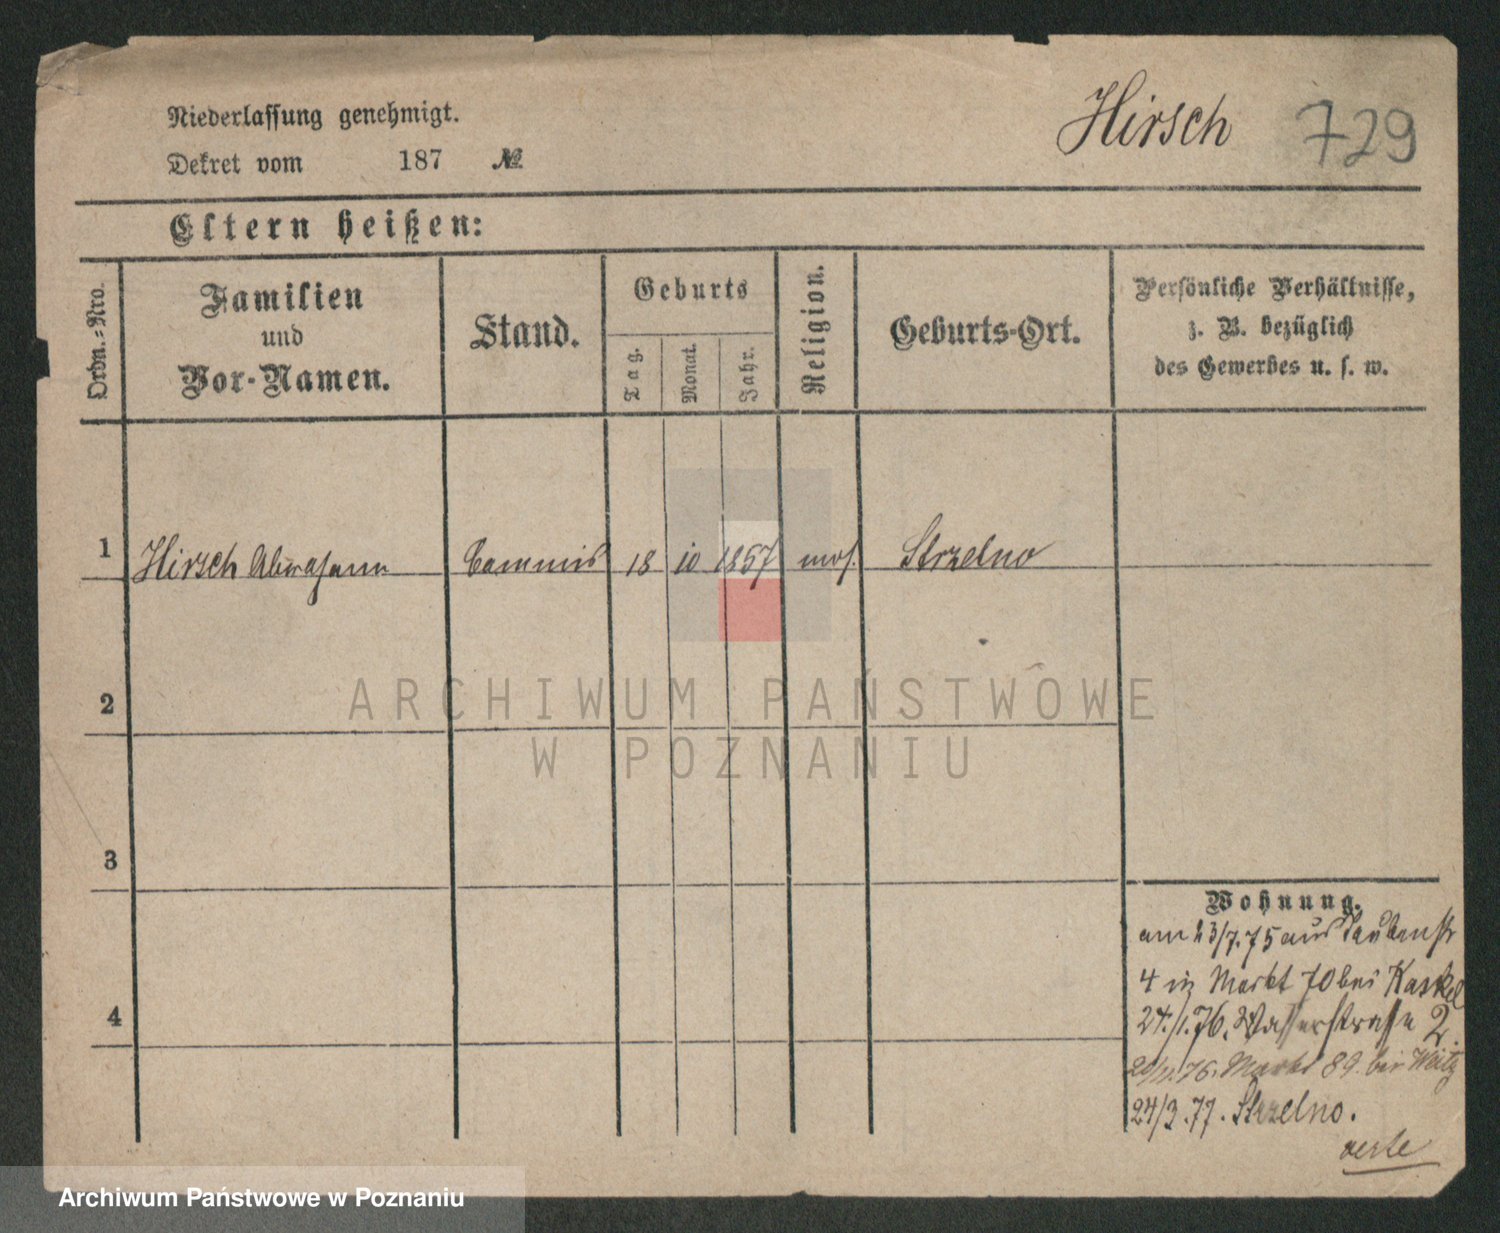 Niederlassung genehmigt.
Hirsch 729
Dekret vom 187 №
Eltern heißen:
Ordn.-Nro.
Familien
und
Vor-Namen.
Stand.
Geburts
Tag.
Monat.
Jahr.
Religion.
Geburts-Ort.
Persönliche Verhältnisse,
z. B. bezüglich
des Gewerbes u. s. w.
1 Hirsch Abraham Commis 18 10 1857 mos. Strzelno
2
ARCHIWUM PAŃSTWOWE
W POZNANIU
3
Wohnung.
am 23/7.75 aus Taubenstr
4 in Markt 70 bei Kaskel
4
24./1.76. Wasserstrasse 2.
76. Markt 89. bei
24/3.77. Strzelno.
Archiwum Państwowe w Poznaniu